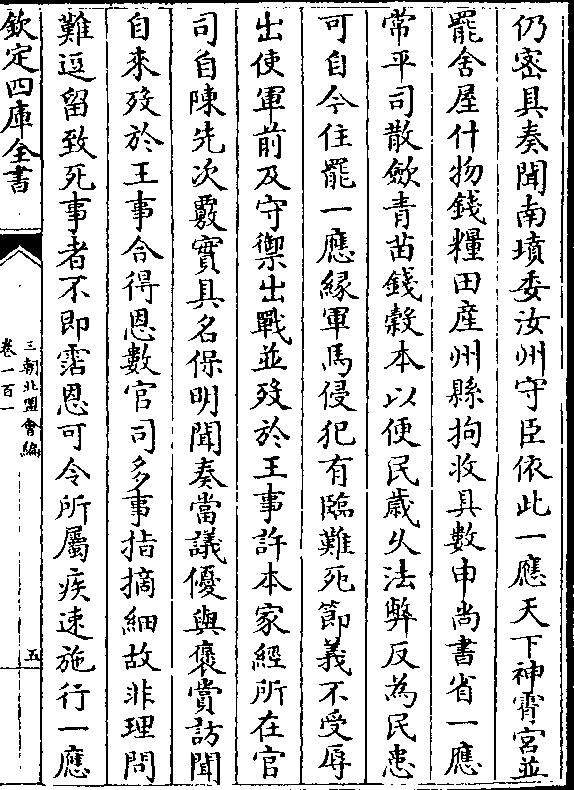 仍密具奏聞南墳委汝州守臣依此一應天下神霄宮並
罷舍屋什物錢糧田產州縣拘收具數申尚書省一應
常平司散斂青苗錢穀本以便民歲久法弊反為民患
可自今住罷一應緣軍馬侵犯有臨難死節義不受辱
出使軍前及守禦出戰並歿於王事許本家經所在官
司自陳先次覈實具名保明聞奏當議優與褒賞訪聞
自來歿於王事合得恩數官司多事指摘細故非理問
難逗留致死事者不即霑恩可令所屬疾速施行一應
欽定四庫全書
三朝北盟會編
卷一百一
五